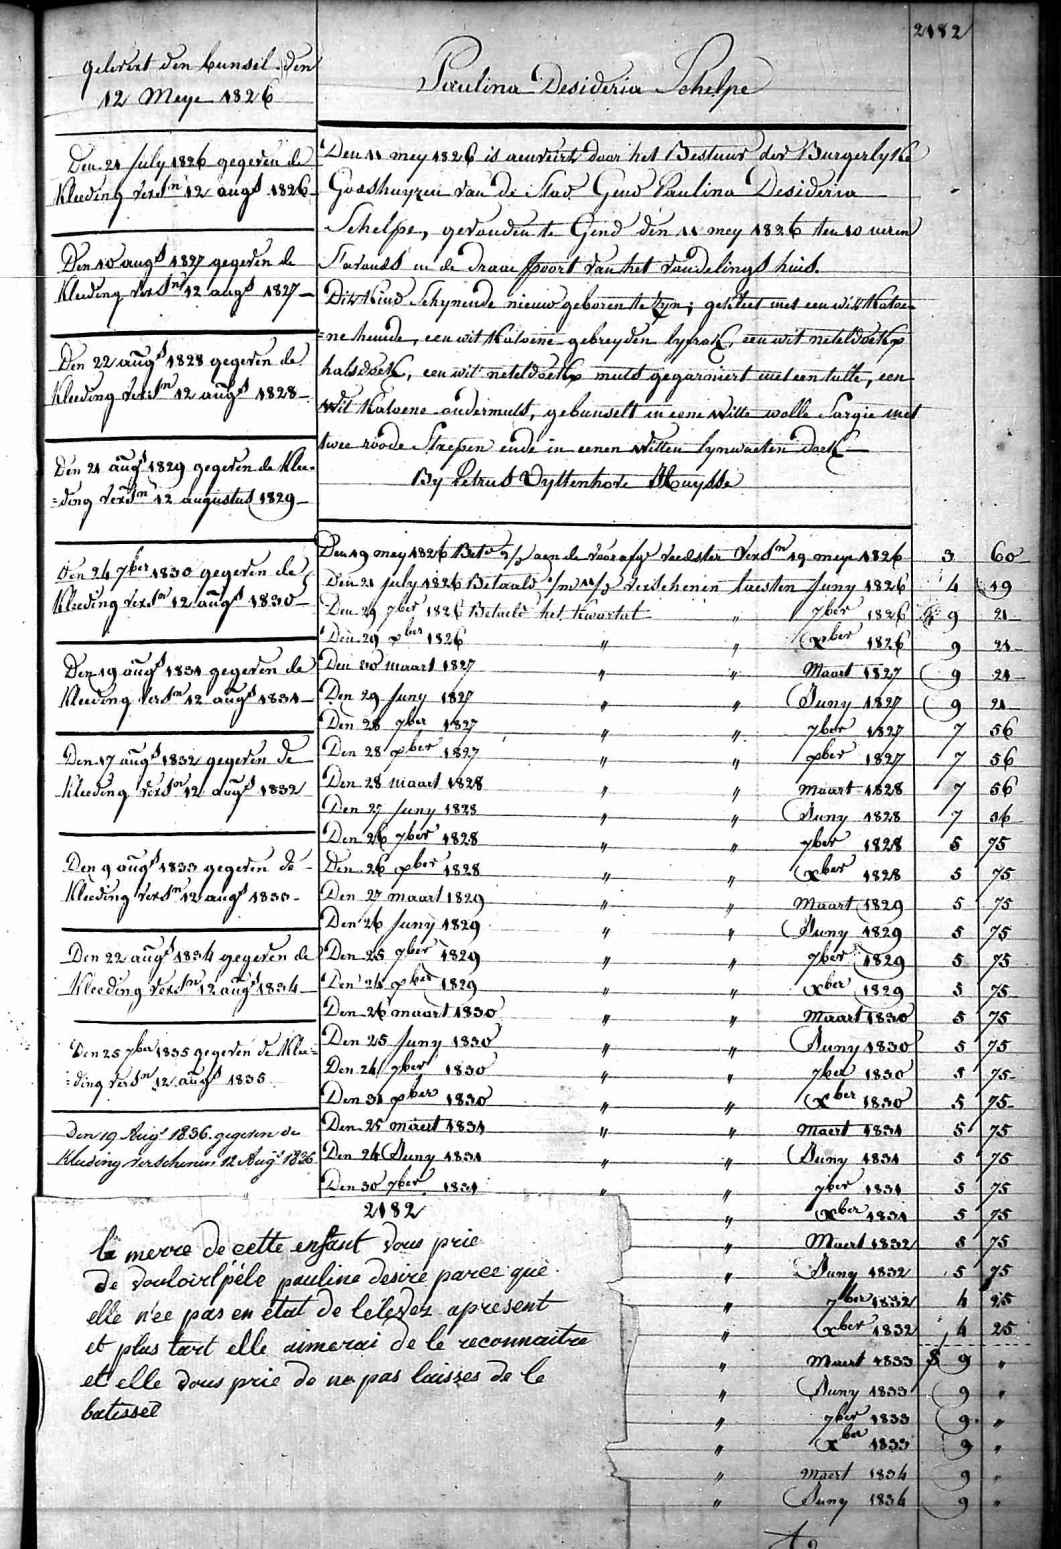 2182
gelevert den bunsel den
12 Meye 1826
Paulina Desideria Schelpe
Den 21 July 1826 gegeven de
Kleeding versn 12 augs 1826
Den 10 augs 1827 gegeven de
Kleeding versn 12 augs 1827
Den 22 augs 1828 gegeven de
Kleeding versn 12 augs 1828
Den 21 augs 1829 gegeven de Klee-
=ding versn 12 augustus 1829
Den 24 7ber 1830 gegeven de
Kleeding versn 12 augs 1830
Den 19 augs 1831 gegeven de
Kleeding versn 12 augs 1831
Den 17 augs 1832 gegeven de
Kleeding versn 12 augs 1832
Den 9 augs 1833 gegeven de
Kleeding versn 12 augs 1833
Den 22 augs 1834 gegeven de
Kleeding versn 12 augs 1834
Den 25 7ber 1835 gegeven de Klee=
=ding versn 12 augs 1835
Den 19 Augs 1836 gegeven de
Kleeding verschenen 12 Augs 1836
Den 11 mey 1826 is aenveirt door het Bestuur der Burgerlyke
Godshuyzen van de Stad Gend Paulina Desideria
Schelpe, gevonden te Gend den 11 mey 1826 ten 10 uren
s'avonds in de draai poort van het vondelings huis.
Dit Kind Schynende nieuw geboren te zyn; gekleet met een wit Katoe-
=ne hemde, een wit Katoene gebreyden lyfrok, een wit neteldoekx
halsdoek, een wit neteldoekx muts gegarniert met een tulle, een
wit Katoene ondermuts, gebunselt in eene witte wolle Sargie met
twee roode Strepen ende in eenen witten lynwaeten doek
By Petrus Uyttenhove Huysse
Den 19 mey 1826 aen de versn 19 meye 1826 3 60
Den 21 July 1826 Betaald verschenen laesten Juny 1826 4 19
Den 29 7ber 1826 Betaeld het Kwartat " 7ber 1826 9 21
Den 29 xber 1826 " " xber 1826 9 21
Den 30 maart 1827 " " Maart 1827 9 21
Den 29 Juny 1827 " " Juny 1827 9 21
Den 28 7ber 1827 " " 7ber 1827 7 56
Den 28 xber 1827 " " xber 1827 7 56
Den 28 maart 1828 " " Maart 1828 7 56
Den 27 Juny 1828 " " Juny 1828 7 56
Den 26 7ber 1828 " " 7ber 1828 5 75
Den 26 xber 1828 " " xber 1828 5 75
Den 27 maart 1829 " " Maart 1829 5 75
Den 26 Juny 1829 " " Juny 1829 5 75
Den 25 7ber 1829 " " 7ber 1829 5 75
Den 24 xber 1829 " " xber 1829 5 75
Den 26 maart 1830 " " Maart 1830 5 75
Den 25 Juny 1830 " " Juny 1830 5 75
Den 24 7ber 1830 " " 7ber 1830 5 75
Den 31 xber 1830 " " xber 1830 5 75
Den 25 maert 1831 " " Maert 1831 5 75
Den 24 Juny 1831 " " Juny 1831 5 75
Den 30 7ber 1831 " " 7ber 1831 5 75
" xber 1831 5 75
" Maert 1832 5 75
" Juny 1832 5 75
" 7ber 1832 4 25
" xber 1832 4 25
" Maert 1833 9 "
" Juny 1833 9 "
" 7ber 1833 9 "
" xber 1833 9 "
" Maert 1834 9 "
" Juny 1834 9 "
2182
la merre de cette enfant vous prie
de vouloir l'péle pauline desiré parce que
elle n'ée pas en état de lélevez apresent
et plus tart elle aimerai de le reconnaitre
et elle vous prie de ne pas laisses de le
batisseé